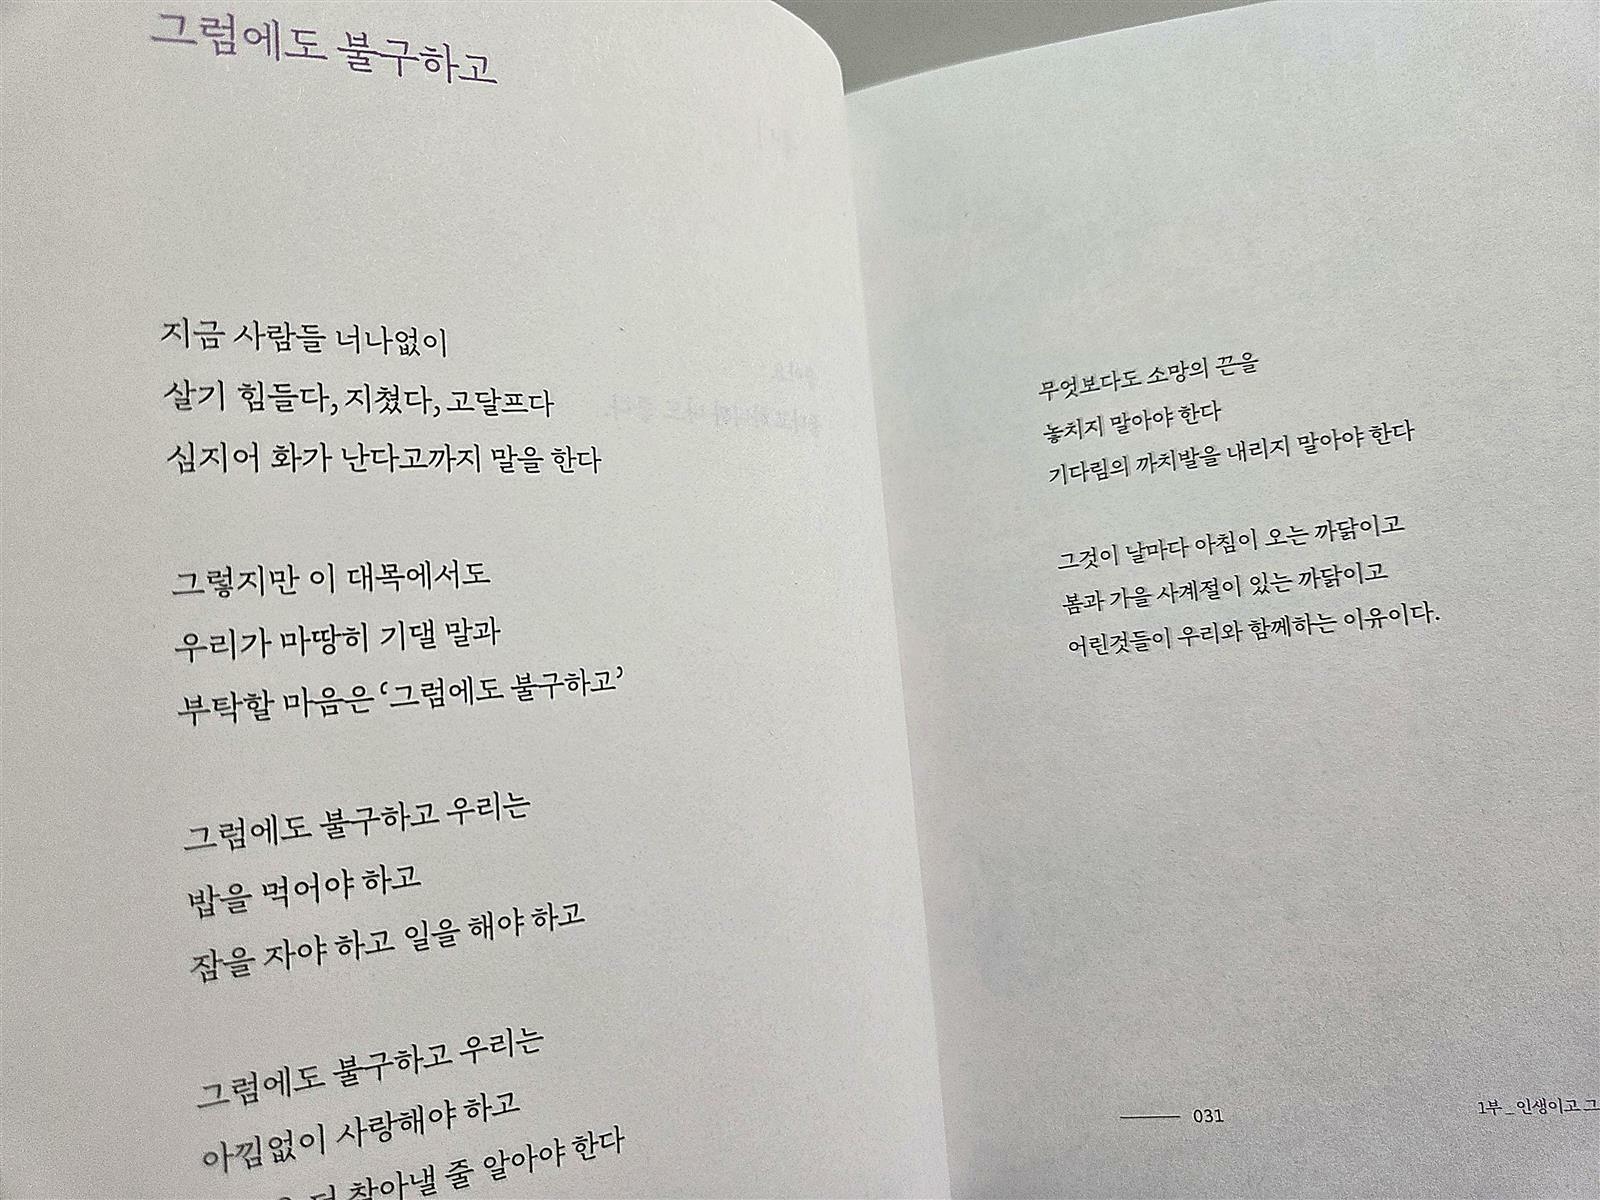 그럼에도 불구하고
지금 사람들 너나없이
살기 힘들다, 지쳤다, 고달프다
심지어 화가 난다고까지 말을 한다
그렇지만 이 대목에서도
우리가 마땅히 기댈 말과
부탁할 마음은 ‘그럼에도 불구하고’
그럼에도 불구하고 우리는
밥을 먹어야 하고
잠을 자야 하고 일을 해야 하고
그럼에도 불구하고 우리는
아낌없이 사랑해야 하고
더 찾아낼 줄 알아야 한다
무엇보다도 소망의 끈을
놓치지 말아야 한다
기다림의 까치발을 내리지 말아야 한다
그것이 날마다 아침이 오는 까닭이고
봄과 가을 사계절이 있는 까닭이고
어린것들이 우리와 함께하는 이유이다.
031
1부_인생이고 그